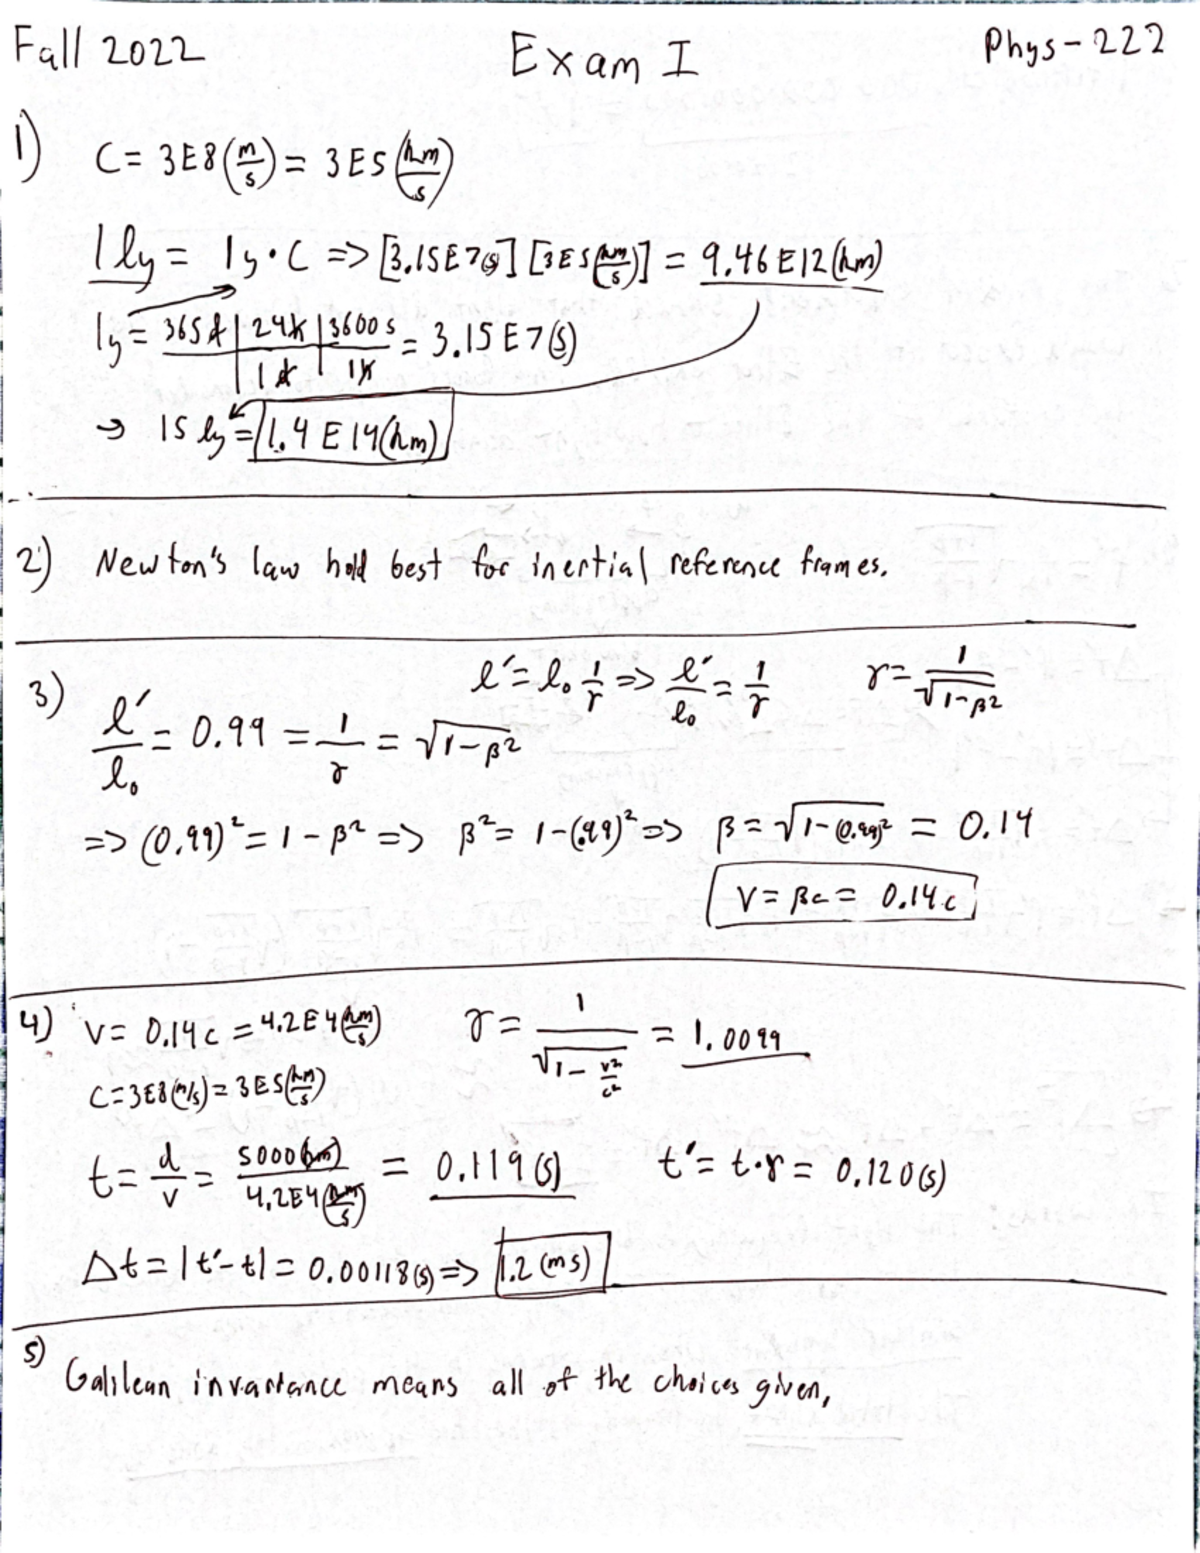 Fall 2022 Exam I Phys-222
1) C = 3E8 (m/s) = 3E5 (km/s)
1 ly = 1y · C => [3.15E7(s)] [3E5 (km/s)] = 9.46 E12 (km)
1y = 365 d | 24 h / 1 d | 3600 s / 1 h = 3.15 E7 (s)
→ 15 ly = 1.4 E14 (km)
2) Newton's law hold best for inertial reference frames.
l′ = l₀ 1/γ => l′/l₀ = 1/γ γ = 1/√(1-β²)
3) l′/l₀ = 0.99 = 1/γ = √(1-β²)
=> (0.99)² = 1 - β² => β² = 1-(.99)² => β = √(1-(0.99)²) = 0.14
V = βc = 0.14 c
4) V = 0.14 c = 4.2E4 (km/s) γ = 1/√(1 - v²/c²) = 1.0099
C = 3E8 (m/s) = 3E5 (km/s)
t = d/v = 5000 (km) / 4.2E4 (km/s) = 0.119 (s) t′ = t·γ = 0.120 (s)
Δt = |t′-t| = 0.00118 (s) => 1.2 (ms)
5) Galilean invariance means all of the choices given,